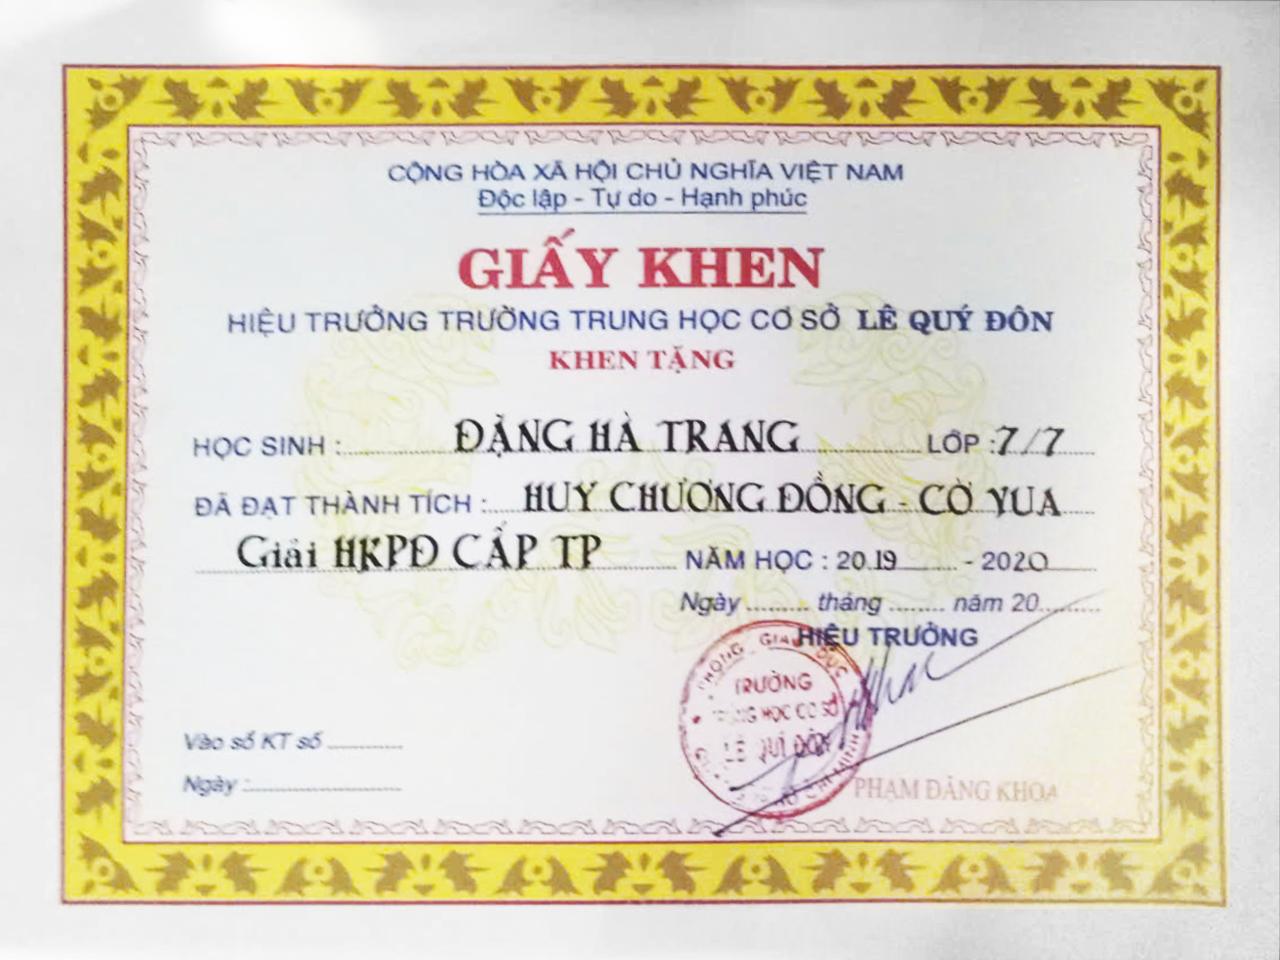 CỘNG HÒA XÃ HỘI CHỦ NGHĨA VIỆT NAM
Độc lập - Tự do - Hạnh phúc
GIẤY KHEN
HIỆU TRƯỞNG TRƯỜNG TRUNG HỌC CƠ SỞ LÊ QUÝ ĐÔN
KHEN TẶNG
HỌC SINH : ĐẶNG HÀ TRANG LỚP : 7/7
ĐÃ ĐẠT THÀNH TÍCH : HUY CHƯƠNG ĐỒNG - CỜ VUA
Giải HKPĐ CẤP TP NĂM HỌC : 2019 - 2020
Ngày ......... tháng ........ năm 20.........
HIỆU TRƯỞNG
PHÒNG GIÁO DỤC
TRƯỜNG
TRUNG HỌC CƠ SỞ
LÊ QUÍ ĐÔN
HỒ CHÍ MINH
Vào sổ KT số ............
Ngày : ............
PHẠM ĐĂNG KHOA